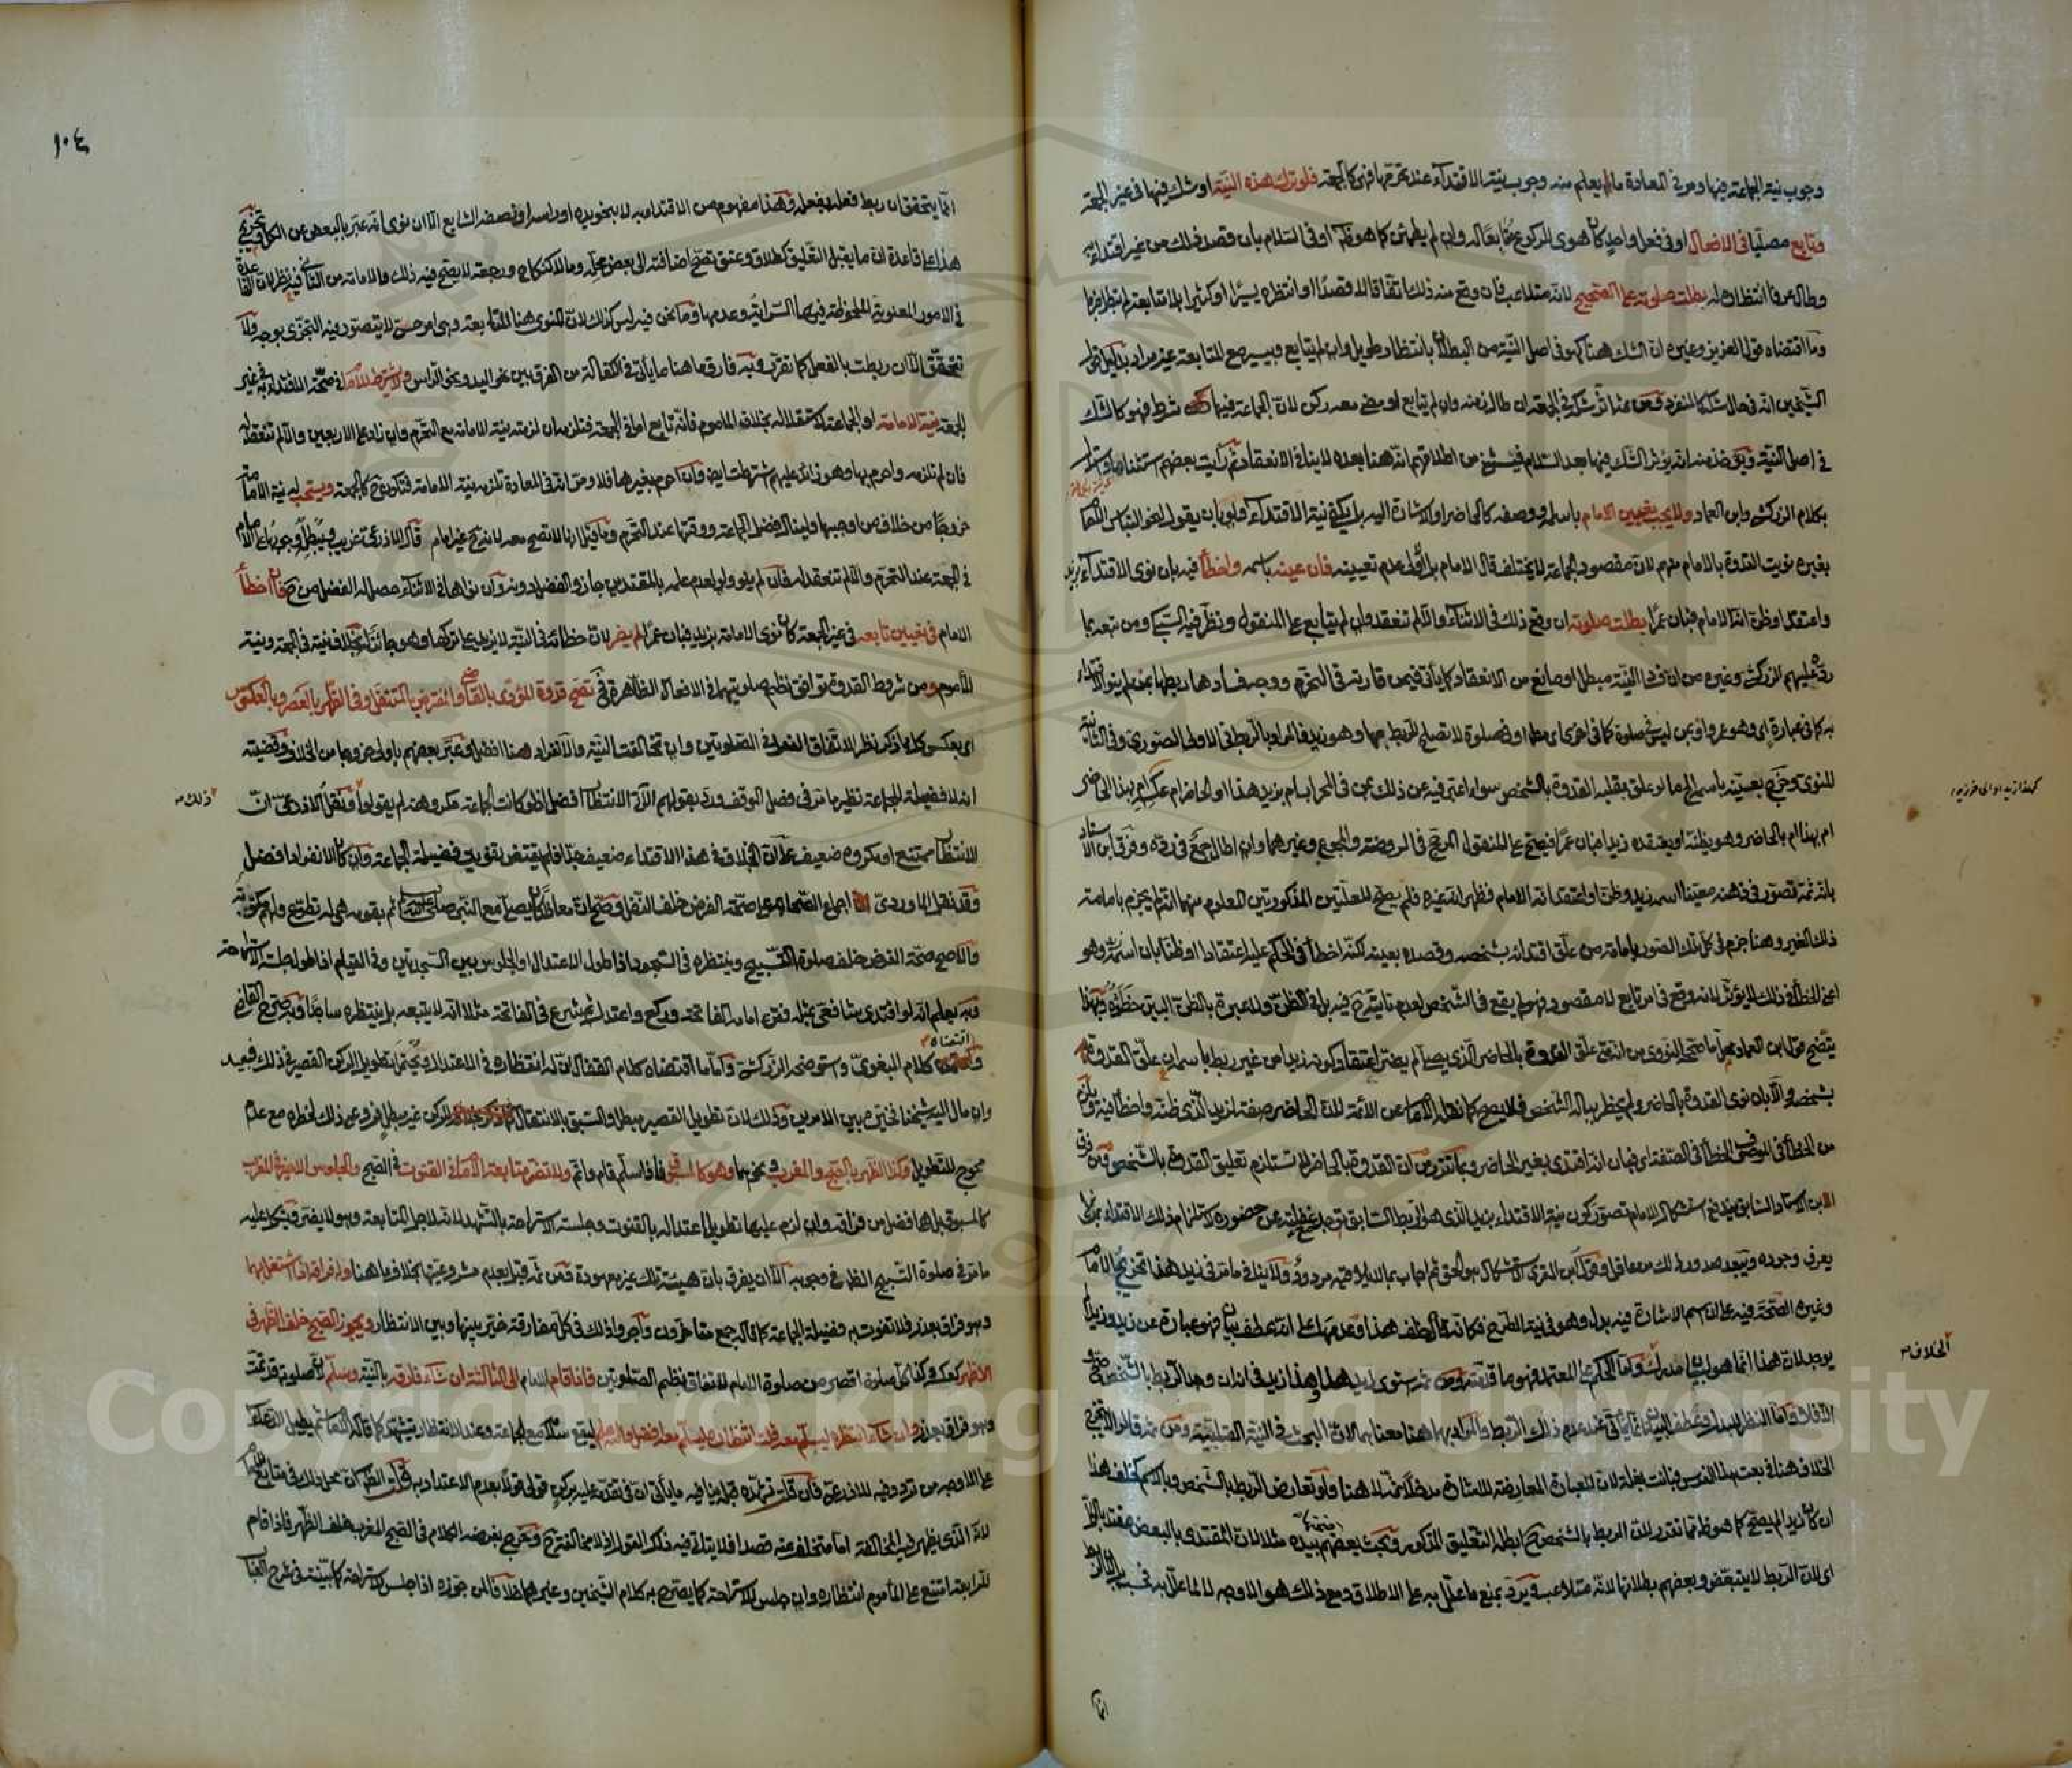 وجوب نية الجماعة فيها ومر في المعادة ما يعلم منه وجوب نية الاقتداء عند تحرمها فهي كالجمعة فلو ترك هذه النية او شك فيها في غير الجمعة
وتابع مصليا في الافعال او في فعل واحد كان هوى للركوع متابعا له وان لم يطمئن كما هو ظاهر او في السلام بان قصد ذلك من غير اقتداء به
وطال عرفا انتظاره له بطلت صلوته على الصحيح لانه متلاعب فان وقع منه ذلك اتفاقا لا قصدا او انتظره يسيرا او كثيرا بلا متابعة لم تبطل جزما
وما اقتضاه قول العزيز وغيره ان الشك هنا كهو في اصل النية من البطلان بانتظار طويل وان لم يتابع وبيسير مع المتابعة غير مراد بدليل قول
الشيخين انه في حال شكه كالمنفرد ومن ثم اثر شكه في الجمعة ان طال زمنه وان لم يتابع او مضى معه ركن لان الجماعة فيها شرط فهو كالشك
في اصل النية ويؤخذ منه انه يؤثر الشك فيها بعد السلام فيستثنى من اطلاقهم انه هنا بعده لا ينافي الانعقاد ثم رأيت بعضهم استثناها واستدل
بكلام الزركشي وابن العماد ولا يجب تعيين الامام باسمه او وصفه كالحاضر او الاشارة اليه بل يكفي نية الاقتداء ولو بان يقول لنحو التباس الامام
بغيره نويت القدوة بالامام منهم لان مقصود الجماعة لا يختلف قال الامام بل الاولى عدم تعيينه فان عينه باسمه واخطأ فيه بان نوى الاقتداء بزيد
واعتقد او ظن انه الامام فبان عمرا بطلت صلوته ان وقع ذلك في الاثناء والا لم تنعقد وان لم يتابع على المنقول ونظر فيه السبكي ومن تبعه بما
رده عليهم الزركشي وغيره من ان فساد النية مبطل او مانع من الانعقاد كما يأتي فيمن قارنه في التحرم ووجه فسادها ربطها بمن لم ينو الاقتداء
به كما في عبارة اي وهو عمرو او بمن ليس في صلوة كما في اخرى اي مطلقا او في صلوة لا تصلح للربط بها وهو زيد فالمراد بالربط في الاولى الصوري وفي الثانية
المنوي وخرج بعينه باسمه الى ما لو علق بقلبه القدوة بالشخص سواء اعبر فيه عن ذلك بمن في المحراب ام بزيد هذا او الحاضر ام عكسه ام بهذا الحاضر
ام بهذا ام بالحاضر وهو يظنه او يعتقده زيدا فبان عمرا فيصح على المنقول المرجح في الروضة والمجموع وغيرهما وان اطال جمع في رده وفرق ابن الاستاد
بانه ثمة تصور في ذهنه معينا اسمه زيد وظن او اعتقد انه الامام فظهر انه غيره فلم يصح للعلتين المذكورتين المعلوم منهما انه لم يجزم بامامته
ذلك الغير وهنا جزم في كل تلك الصور بامامة من علق اقتدائه بشخصه وقصده بعينه لكنه اخطأ في الحكم عليه اعتقادا او ظنا بان اسمه زيد وهو
اعني الخطأ في ذلك لا يؤثر لانه وقع في امر تابع لا مقصود فهو لم يقع في الشخص لعدم تأتيه فيه بل في الظن ولا عبرة بالظن البين خطؤه وبهذا
يتضح قول ابن العماد محل ما صححه النووي من انه متى علق القدوة بالحاضر الذي يصلي لم يضر اعتقاد كونه زيدا من غير ربط باسمه ان علق القدوة
بشخصه والا بان نوى القدوة بالحاضر ولم يخطر بباله الشخص فلا يصح كما نقله الامام عن الائمة لان الحاضر صفة لزيد الذي ظنه واخطأ فيه ويلزم
من الخطأ في الموصوف الخطأ في الصفة اي فبان انه اقتدى بغير الحاضر وبما تقرر من ان القدوة بالحاضر لا تستلزم تعليق القدوة بالشخص ومن فرق
ابن الاستاد السابق يندفع استشكال الامام تصور كون نية الاقتداء بزيد الذي هو الربط السابق توجد مع غفلته عن حضوره لاستلزام ذلك الاقتداء بمن لا
يعرف وجوده ويبعد صدور ذلك من عاقل وقول ابن المقري الاستشكال هو الحق ثم اجاب بما لا يلاقيه مردود ولا ينافي ما مر في زيد هذا تخريج الامام
وغيره الصحة فيه على ان اسم الاشارة فيه بدل وهو في نية الطرح فكأنه قال خلف هذا وعدمها على انه عطف بيان فهو عبارة عن زيد وزيد لم
يوجد لان هذا انما هو لبيان مدرك واما الحكم على المعتمد فهو ما قدمته ومن ثم استوى زيد هذا وهذا زيد في انه ان وجد الربط بالشخص صح و
الا فلا واما النظر للبدل وعطف البيان فانما يأتي عند عدم ذلك الربط والمراد بهما هنا معناهما لان البحث في النية القلبية ومن ثم قالوا لا يجيء
الخلاف هنا في بعتك هذا الفرس فبانت بغلة لان للعبارة المعارضة للاشارة مدخلا ثمة لا هنا ولو تعارض الربط بالشخص وبالاسم كخلف هذا
ان كان زيدا لم يصح كما هو ظاهر مما تقرر لان الربط بالشخص ح ابطله التعليق المذكور وبحث بعضهم بيده مثلا لان المقتدى بالبعض مقتد بالكل
اي لان الربط لا يتبعض وبعضهم بطلانها لانه متلاعب ويرد بمنع ما علل به على الاطلاق ومع ذلك هو الاوجه لا لما علل به فحسب بل لان الربط
انما
كهذا زيد او اي خر زيد
الخلاف
١٠٤
انما يتحقق ان ربط فعله بفعله وهذا مفهوم من الاقتداء به لا بنحو يده او رأسه او نصفه الشايع الا ان نوى انه عبر بالبعض عن الكل وتخريج
هذا على قاعدة ان ما يقبل التعليق كطلاق وعتق تصح اضافته الى بعض محله وما لا كنكاح ورجعة لا يصح فيه ذلك والامامة من الثاني فيه نظر لان القاعدة
في الامور المعنوية الملحوظة فيها السراية وعدمها وما نحن فيه ليس كذلك لان المنوي هنا المتابعة وهي امر حسي لا يتصور فيه التجزي بوجه ولا
تتحقق الا ان ربطت بالفعل كما تقرر وبه فارق ما هنا ما يأتي في الكفالة من الفرق بين نحو اليد ونحو الرأس ولا يشترط للامام في صحة الاقتداء به في غير
الجمعة نية الامامة او الجماعة لاستقلاله بخلاف الماموم فانه تابع اما في الجمعة فتلزمه ان لزمته نية الامامة مع التحرم وان زاد على الاربعين والا لم تنعقد له
فان لم تلزمه واحرم بها وهو زائد عليهم اشترطت ايض وان احرم بغيرها فلا ومر انه في المعادة تلزمه نية الامامة فتكون ح كالجمعة ويستحب له نية الامامة
خروجا من خلاف من اوجبها ولينال فضل الجماعة ووقتها عند التحرم وما قيل انها لا تصح معه لانه ح غير امام قال الاذرعي غريب ويبطله وجوبها على الامام
في الجمعة عند التحرم والا لم تنعقد له فان لم ينو ولو لعدم علمه بالمقتدين حازوا الفضل دونه وان نواها في الاثناء حصل له الفضل من ح فان اخطأ
الامام في تعيين تابعه في غير الجمعة كان نوى الامامة بزيد فبان عمرا لم يضر لان خطأه في النية لا يزيد على تركها وهو جائز بخلافه في الجمعة ونية
الماموم ومن شروط القدوة توافق نظم صلوتيهما في الافعال الظاهرة فح تصح قدوة المؤدي بالقاضي والمفترض بالمتنفل وفي الظهر بالعصر وبالعكوس
اي بعكس كل ما ذكر نظرا لاتفاق الفعل في الصلوتين وان تخالفت النية والانفراد هنا افضل وعبر بعضهم باولى خروجا من الخلاف وقضيته
انه لا فضيلة للجماعة نظير ما مر في فصل الموقف ورد بقولهم الآتي الانتظار افضل اذ لو كانت الجماعة مكروهة لم يقولوا ونقل الاذرعي ان
ذلك
الانتظار ممتنع او مكروه ضعيف على ان الخلاف في هذا الاقتداء ضعيف جدا فلم يقتض تفويت فضيلة الجماعة وان كان الانفراد افضل
وقد نقل الماوردي اجماع الصحابة على صحة الفرض خلف النفل وصح ان معاذا كان يصلي مع النبي صلى الله عليه وسلم ثم بقومه هي له تطوع ولهم مكتوبة
والاصح صحة الفرض خلف صلوة التسبيح وينتظره في السجود اذا طول الاعتدال او الجلوس بين السجدتين وفي القيام اذا طول جلسة الاستراحة
وبه يعلم انه لو اقتدى شافعي بمثله فقرأ امامه الفاتحة وركع واعتدل ثم شرع في الفاتحة مثلا انه لا يتبعه بل ينتظره ساجدا وبه صرح القاضي
واقتضاه كلام البغوي واستوضحه الزركشي واما ما اقتضاه كلام القفال ان له انتظاره في الاعتدال ويحتمل تطويل الركن القصير في ذلك فبعيد
وان مال اليه شيخنا فخير بين الامرين وذلك لان تطويل القصير مبطل والسبق بالانتقال للركن غير مبطل فروعي ذلك لخطره مع عدم
محوج للتطويل وكذا الظهر بالصبح والمغرب ونحوهما وهو كالمسبوق فاذا سلم قام واتم ولا تضر متابعة الامام في القنوت في الصبح والجلوس الاخير في المغرب
كالمسبوق بل هما افضل من فراقه وان لزم عليهما تطويل اعتداله بالقنوت وجلسة الاستراحة بالتشهد لانه لاجل المتابعة وهو لا يضر ويشكل عليه
ما مر في صلوة التسبيح الظاهر في وجوبه الا ان يفرق بان هيئة تلك غير معهودة ومن ثم قيل بعدم مشروعيتها بخلاف ما هنا وله فراقه اذا اشتغل بهما
وهو فراق بعذر فلا تفوت به فضيلة الجماعة كما قاله جمع متأخرون واجروا ذلك في كل مفارقة خير بينها وبين الانتظار ويجوز الصبح خلف الظهر في
الاظهر كعكسه وكذا كل صلوة اقصر من صلوة الامام لاتفاق نظم الصلوتين فاذا قام الامام الى الثالثة ان شاء فارقه بالنية وسلم لان صلوته قد تمت
وهو فراق بعذر وان شاء انتظره ليسلم معه قلت انتظاره ليسلم معه افضل والله اعلم ليقع سلامه مع الجماعة وعند الانتظار يتشهد كما قاله الامام ثم يطيل الدعاء
على الاوجه من تردد فيه للاذرعي فان قلت
لانه الذي يظهر فيه المخالفة اما متخلف عنه قصدا فلا يتأتى فيه ذلك القول اذ لا مخالفة ح وخرج بفرضه الكلام في الصبح المغرب خلف الظهر فاذا قام
للرابعة امتنع على المأموم انتظاره وان جلس للاستراحة كما يصرح به كلام الشيخين وغيرهما خلافا لمن جوزه اذا جلس للاستراحة كما بينته في شرح العباب